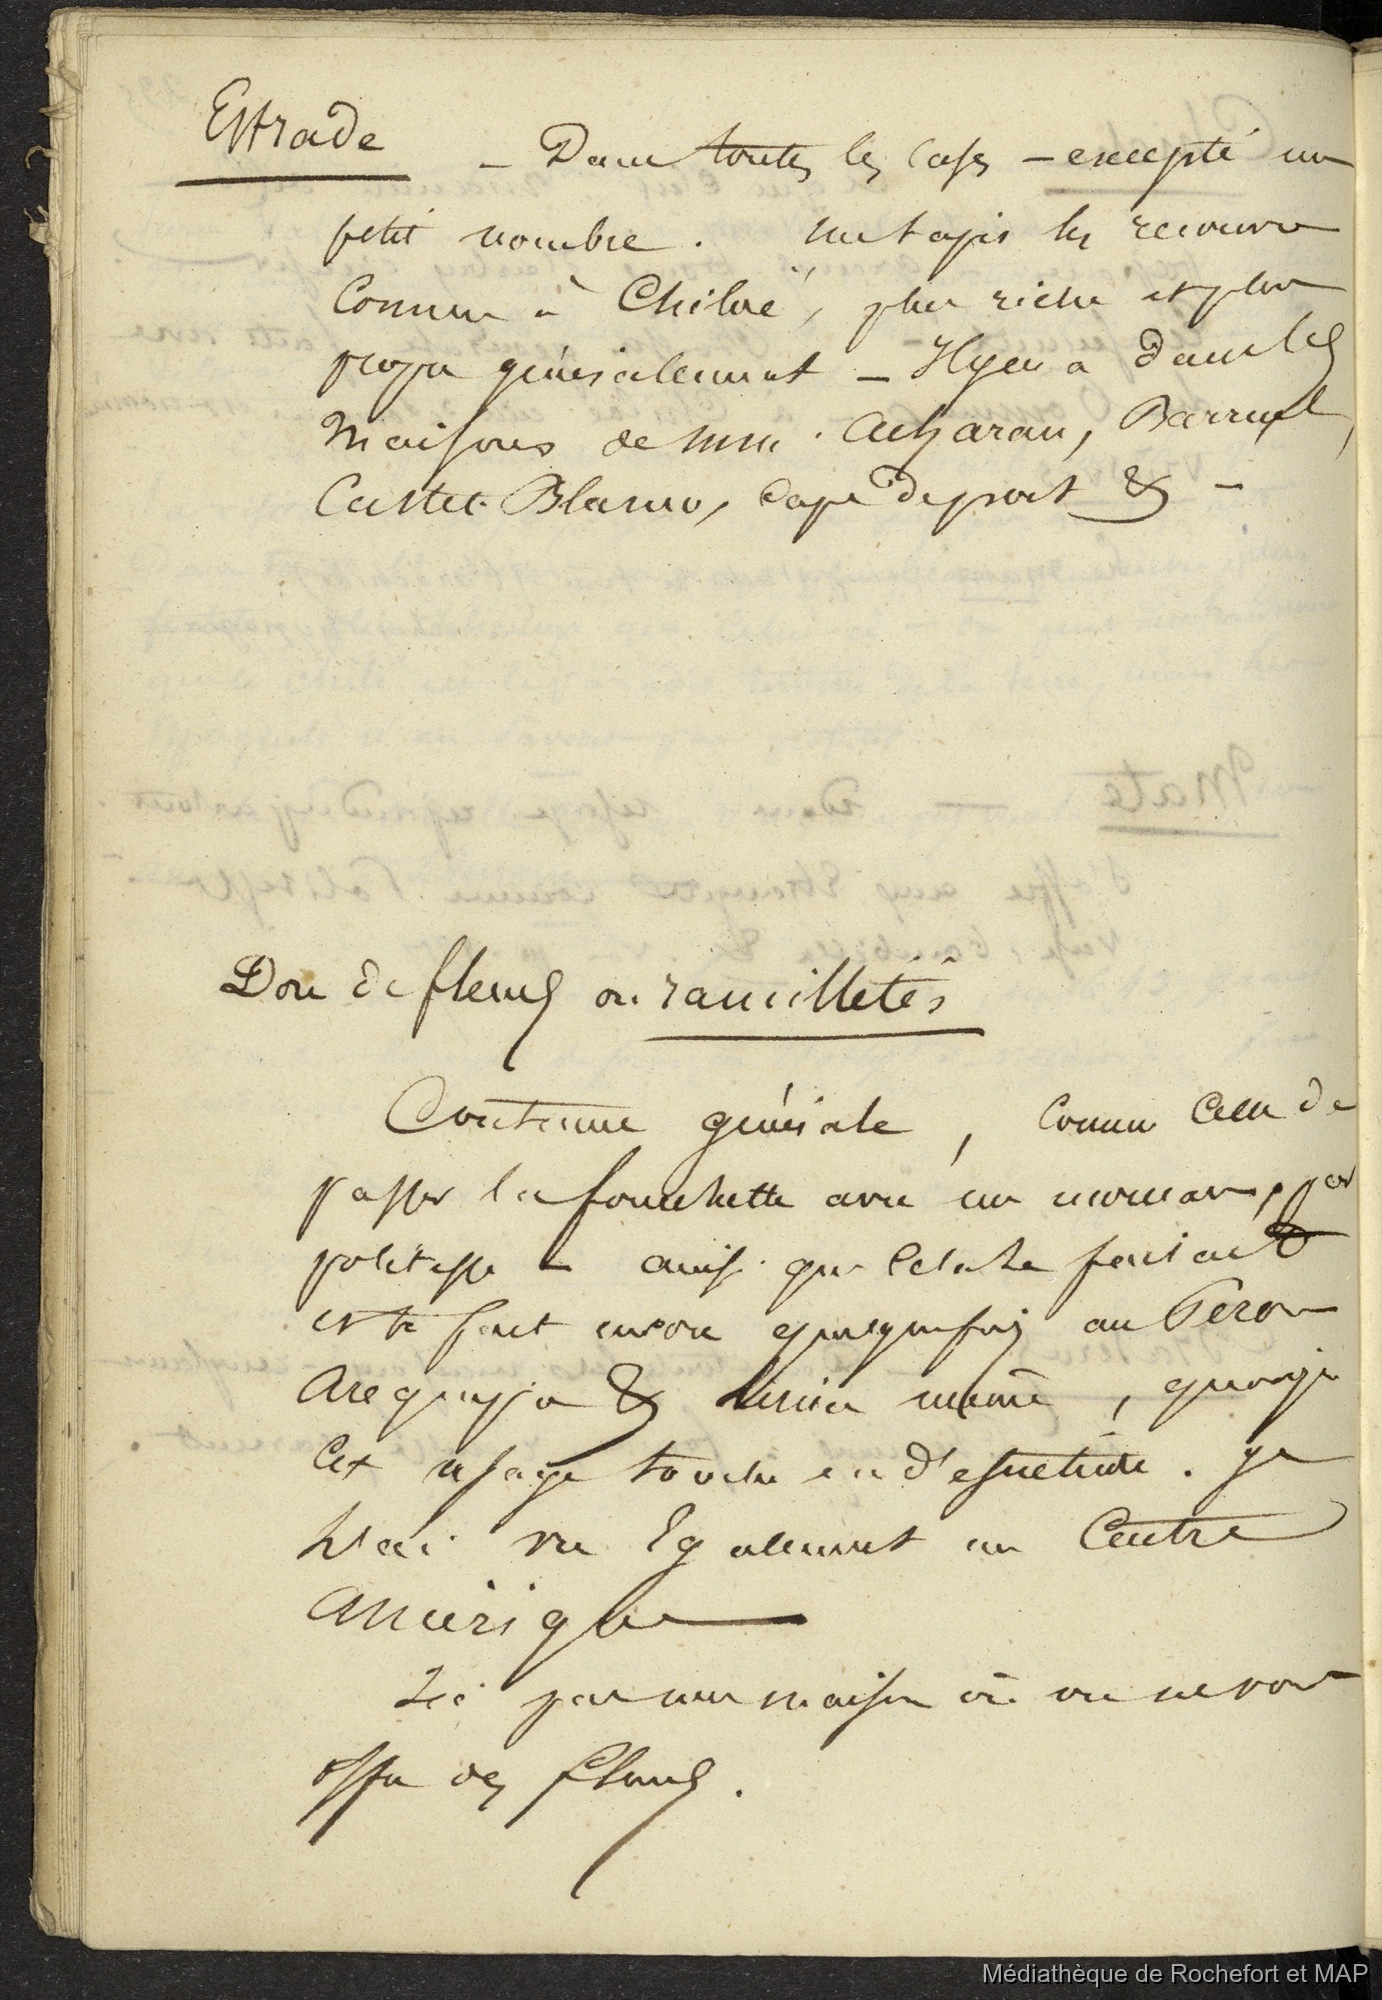 Estrade
— Dans toutes les cases — excepté un
petit nombre. un tapis les recouvre
Comme à Chiloé, plus riche et plus
propre généralement — Il y en a dans les
Maisons de MM. Acharan, Barruel,
Castet. Blanco, Cape de port & —
Don de fleurs ou ramilletés
Coutume générale, Comme Celle de
passer la fourchette avec un morceau, par
politesse — ainsi que Cela se faisait
et se fait encore quelquefois au Pérou
Arequipa & Lima même, quoique
Cet usage touche en désuétude. Je
l'ai vu Egalement en Centre
Amérique —
Ici pas une maison où on ne vous
offre des fleurs.
Médiathèque de Rochefort et MAP